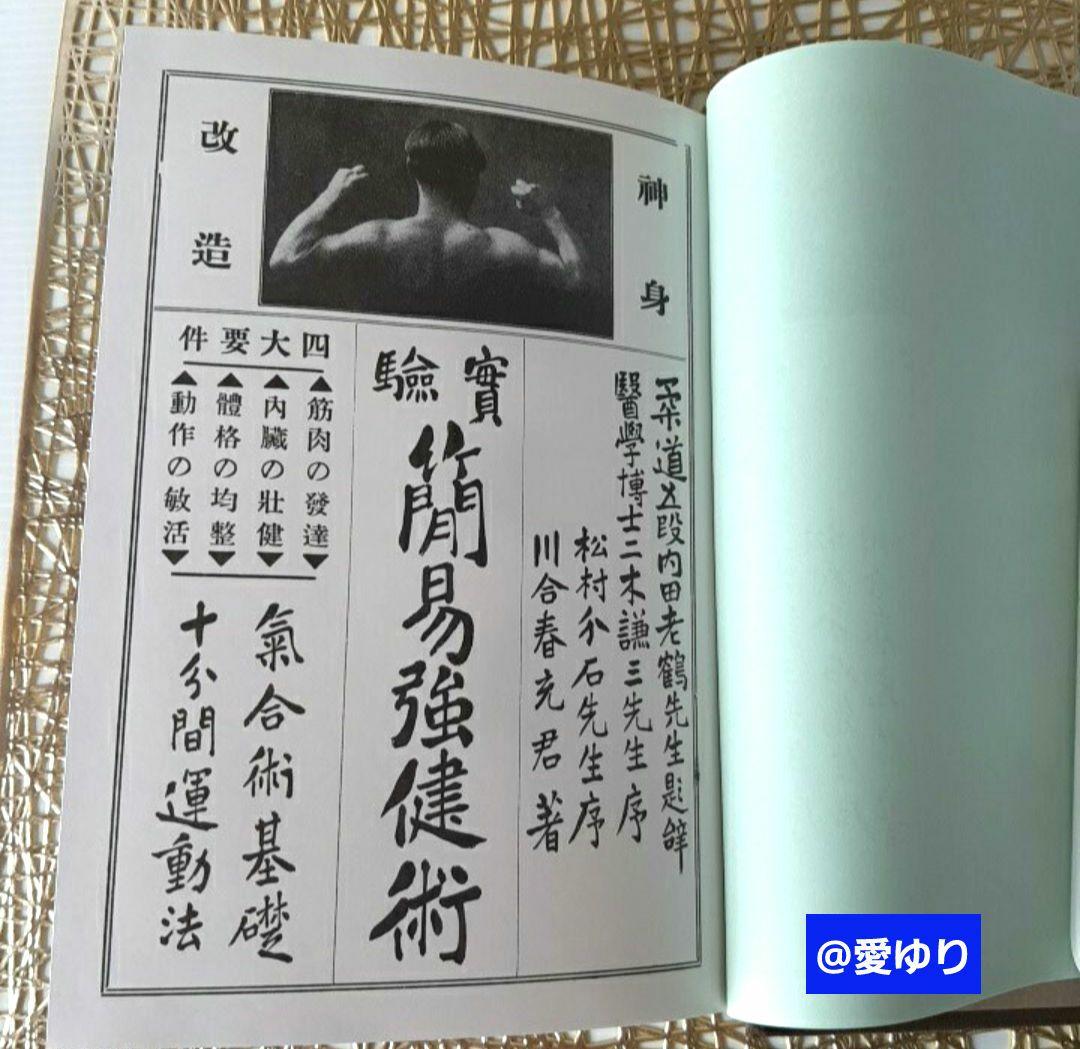 神身
改造
柔道五段内田老鶴先生題辞
醫學博士二木謙三先生序
松村介石先生序
川合春充君著
實驗
簡易強健術
四大要件
▲筋肉の發達▼
▲內臟の壯健▼
▲體格の均整▼
▲動作の敏活▼
氣合術基礎
十分間運動法
@愛ゆり